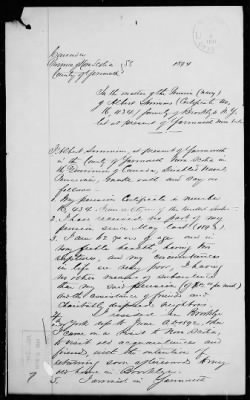 Dominion
Province of Nova Scotia } SS 1894
County of Yarmouth
In the matter of the Pension (Navy)
of Albert (Certificate No.
16,434) formerly of Brooklyn N.Y.
but at present of Yarmouth Nova Scotia
I Albert at present of Yarmouth
in the County of Yarmouth Nova Scotia in
the Dominion of Canada, Disabled Naval
Pensioner, make oath and say as
follows:
1. My pension Certificate is number
16,434
2. I have received no part of my
pension since May last (1893).
3. I am years of age and in
very feeble health, having two
ruptures, and my circumstances
in life are very poor. I having
no other means of subsistence
than my said pension
and the assistance of friends and
charitably disposed neighbors
4. I resided in Brooklyn
New York up to June when
I came on a visit to Nova Scotia,
to visit old acquaintances and
friends, with the intention of
returning soon afterward to my
old home in Brooklyn.
5. I arrived in Yarmouth